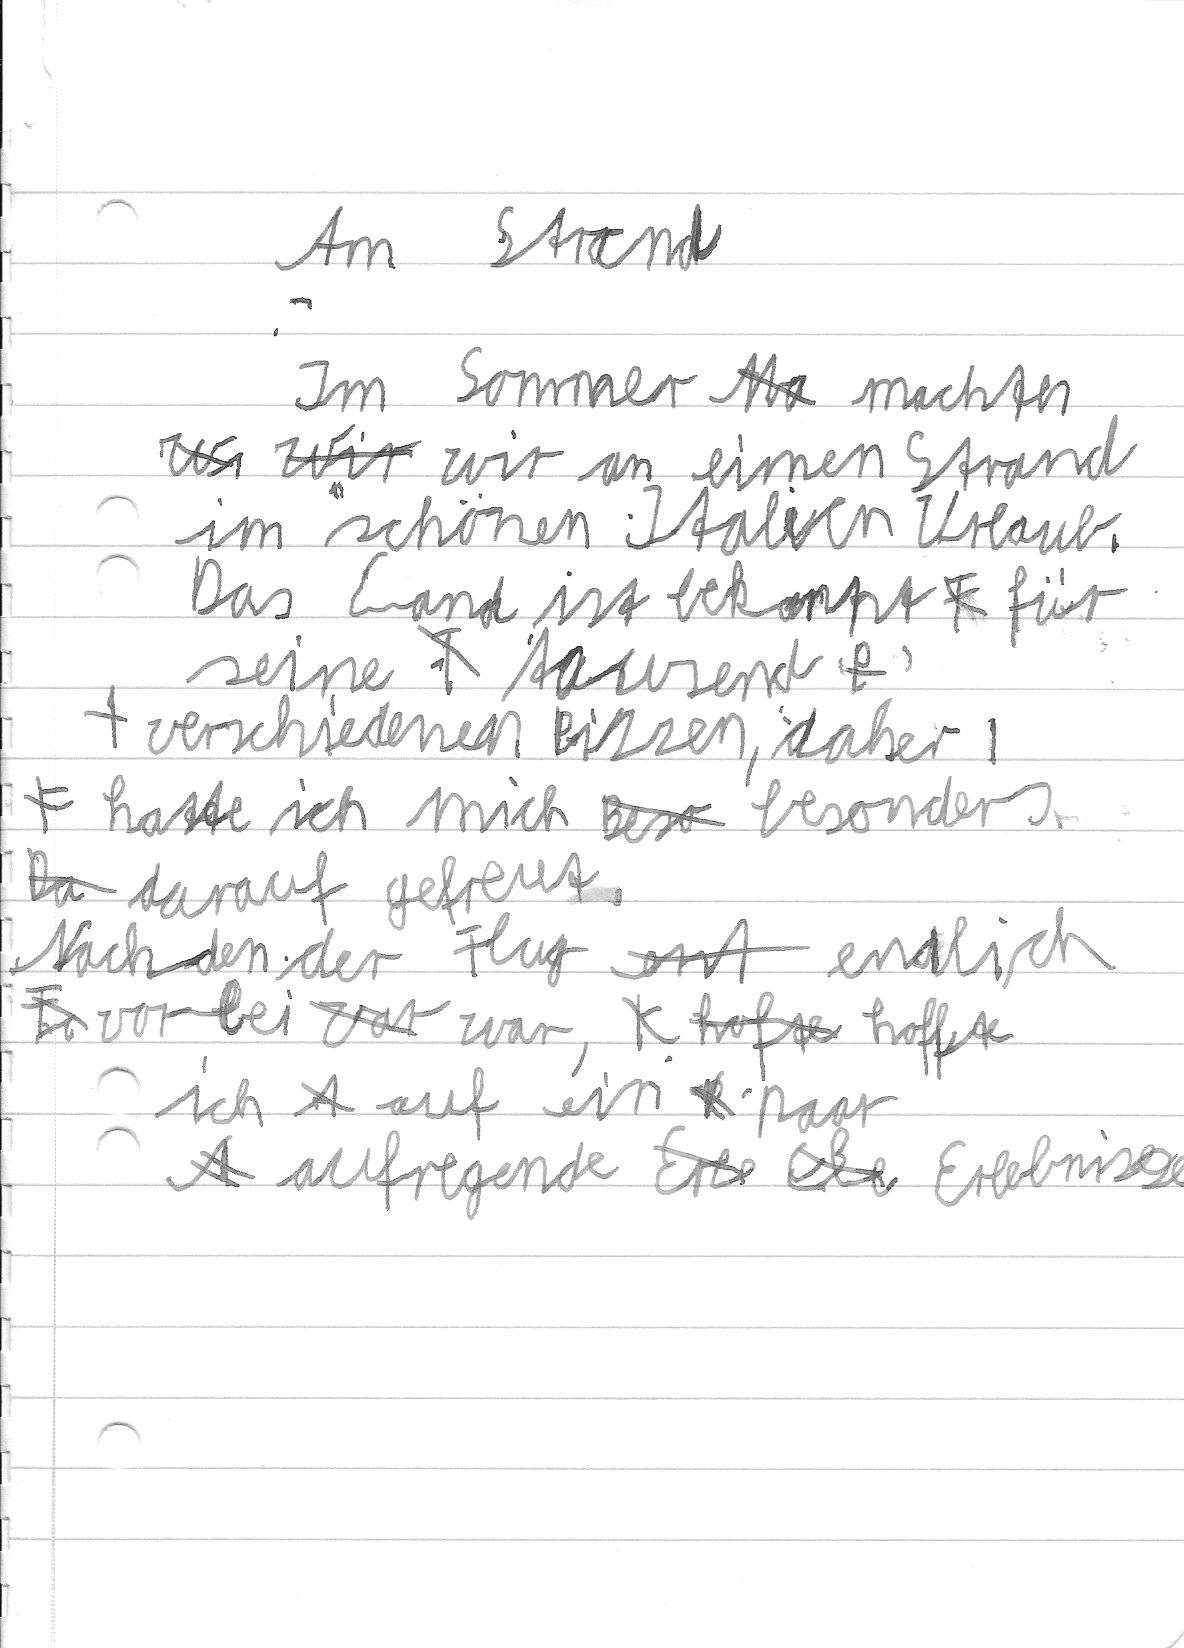 Am Strand
Im Sommer machten
wir an einen Strand
im schönen Italien Urlaub.
Das Land ist bekannt für
seine tausend
verschiedenen Pizzen, daher
hatte ich mich besonders
darauf gefreut.
Nachden der Flug endlich
vorbei war, hoffte
ich auf ein paar
aufregende Erlebnisse